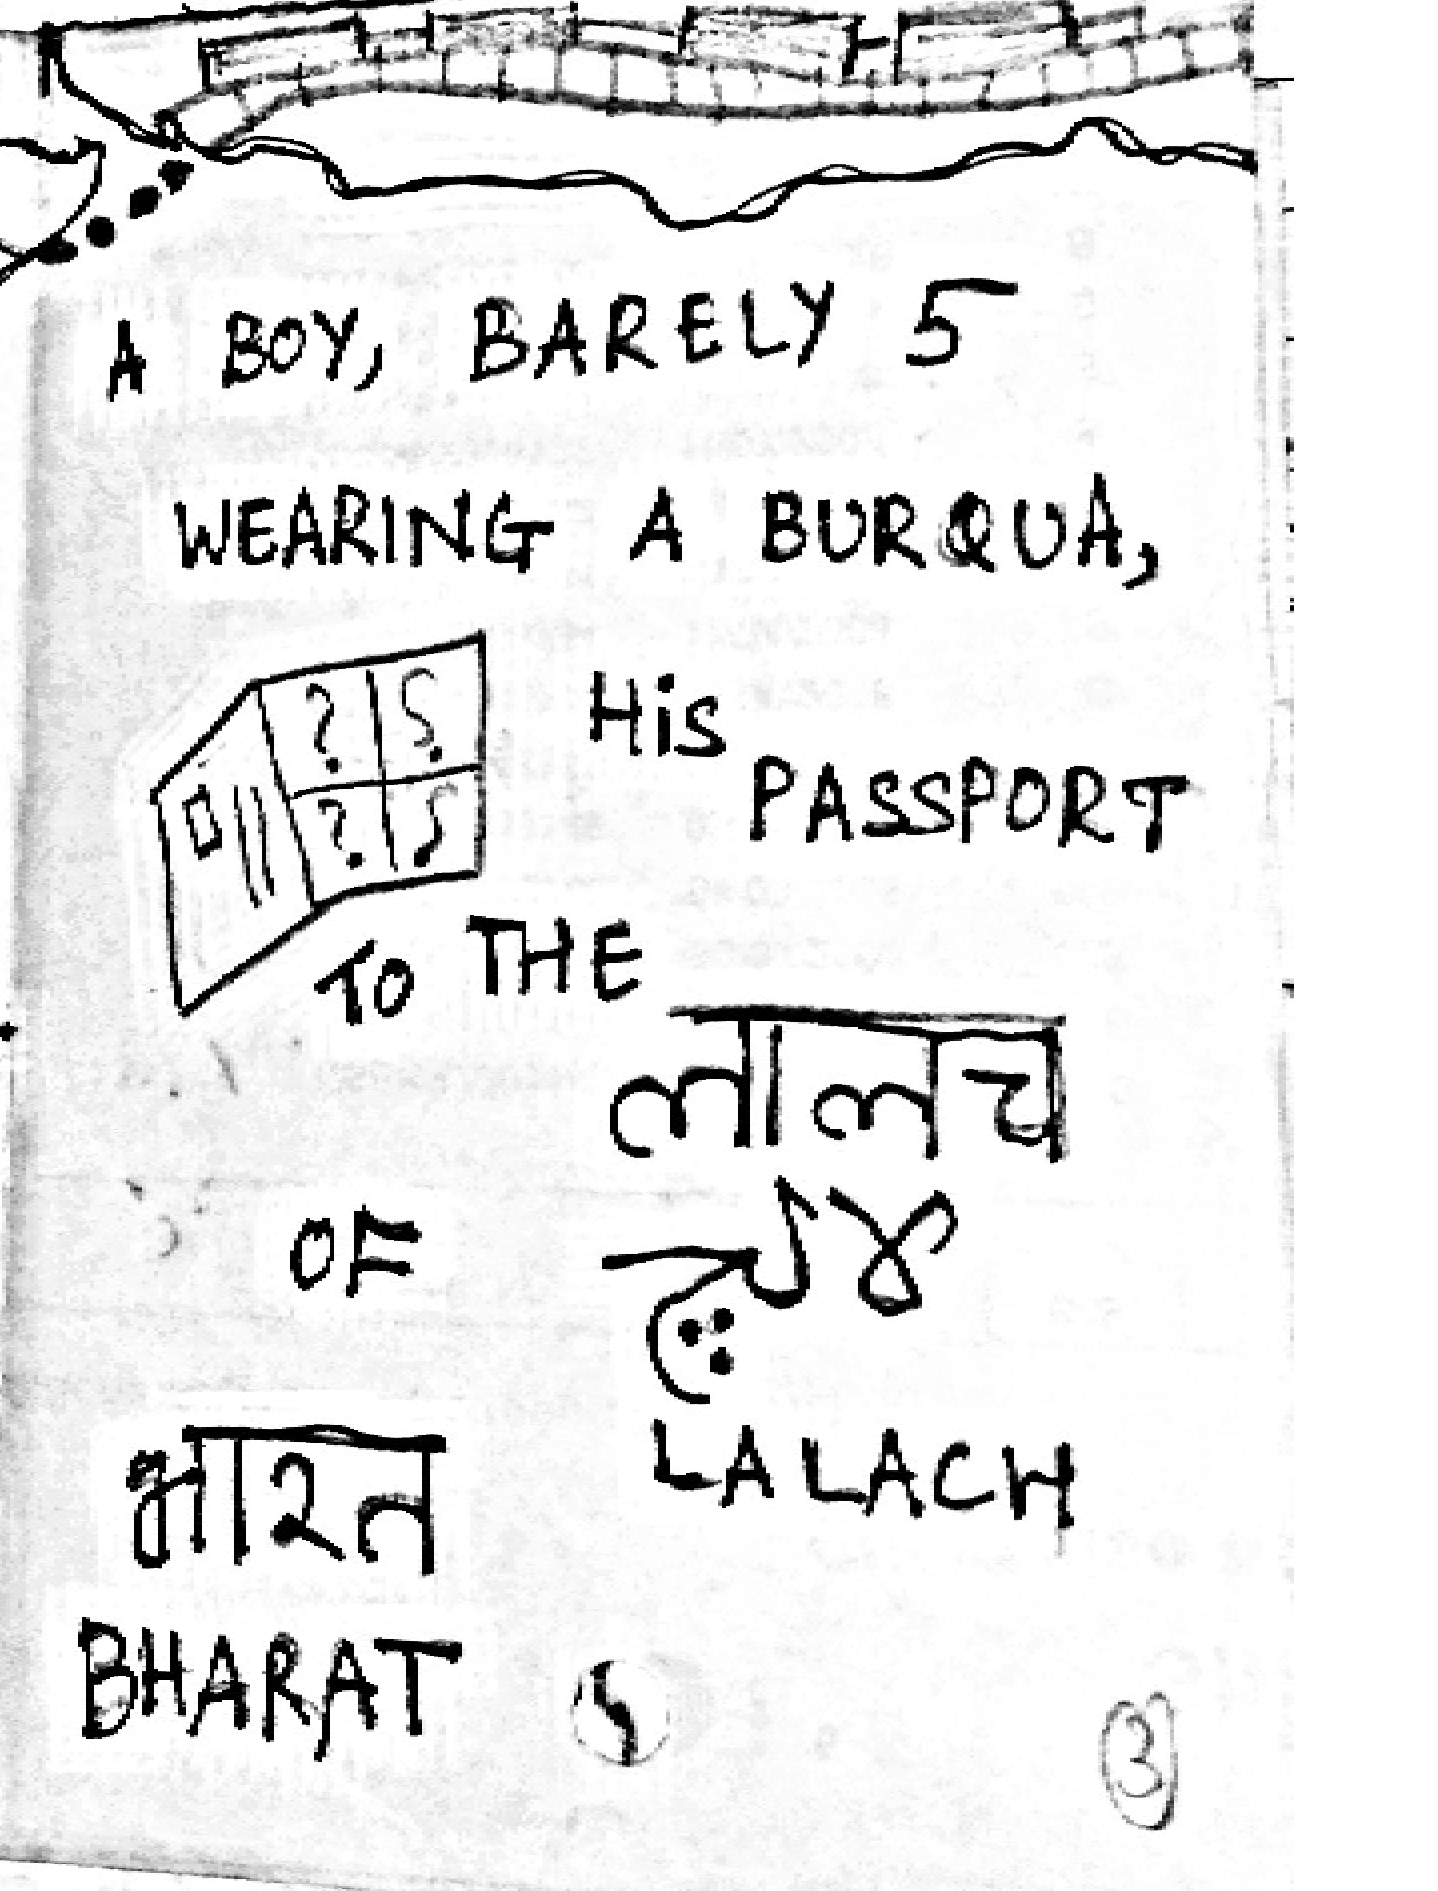 A BOY, BARELY 5
WEARING A BURQUA,
? ?
? ?
HiS
PASSPORT
TO THE
लालच
OF
لالچ
भारत
LALACH
BHARAT
3